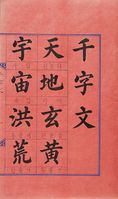 千字文
天地玄黄
宇宙洪荒